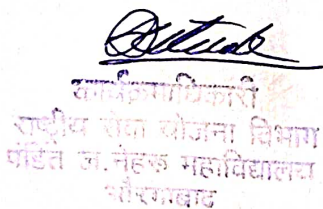 कार्यक्रमाधिकारी
राष्ट्रीय सेवा योजना विभाग
पंडित ज. नेहरू महाविद्यालय
औरंगाबाद